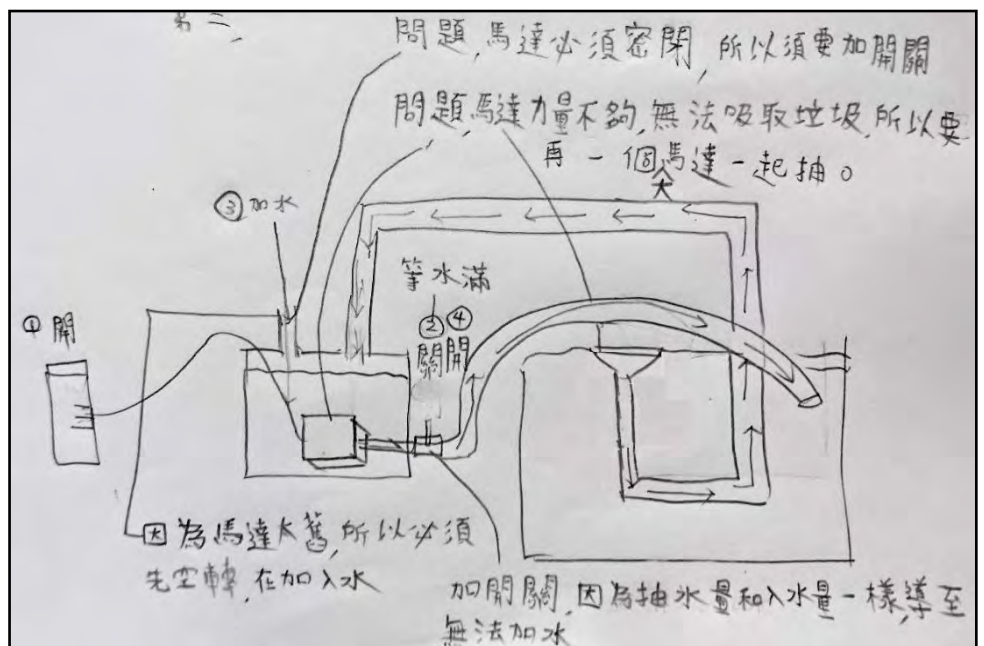 第二、
問題，馬達必須密閉，所以須要加開關
問題，馬達力量不夠，無法吸取垃圾，所以要
再一個大馬達一起抽。
③加水
等水滿
①開
②
④
關
開
因為馬達太舊，所以必須
先空轉，在加入水
加開關，因為抽水量和入水量一樣，導至
無法加水